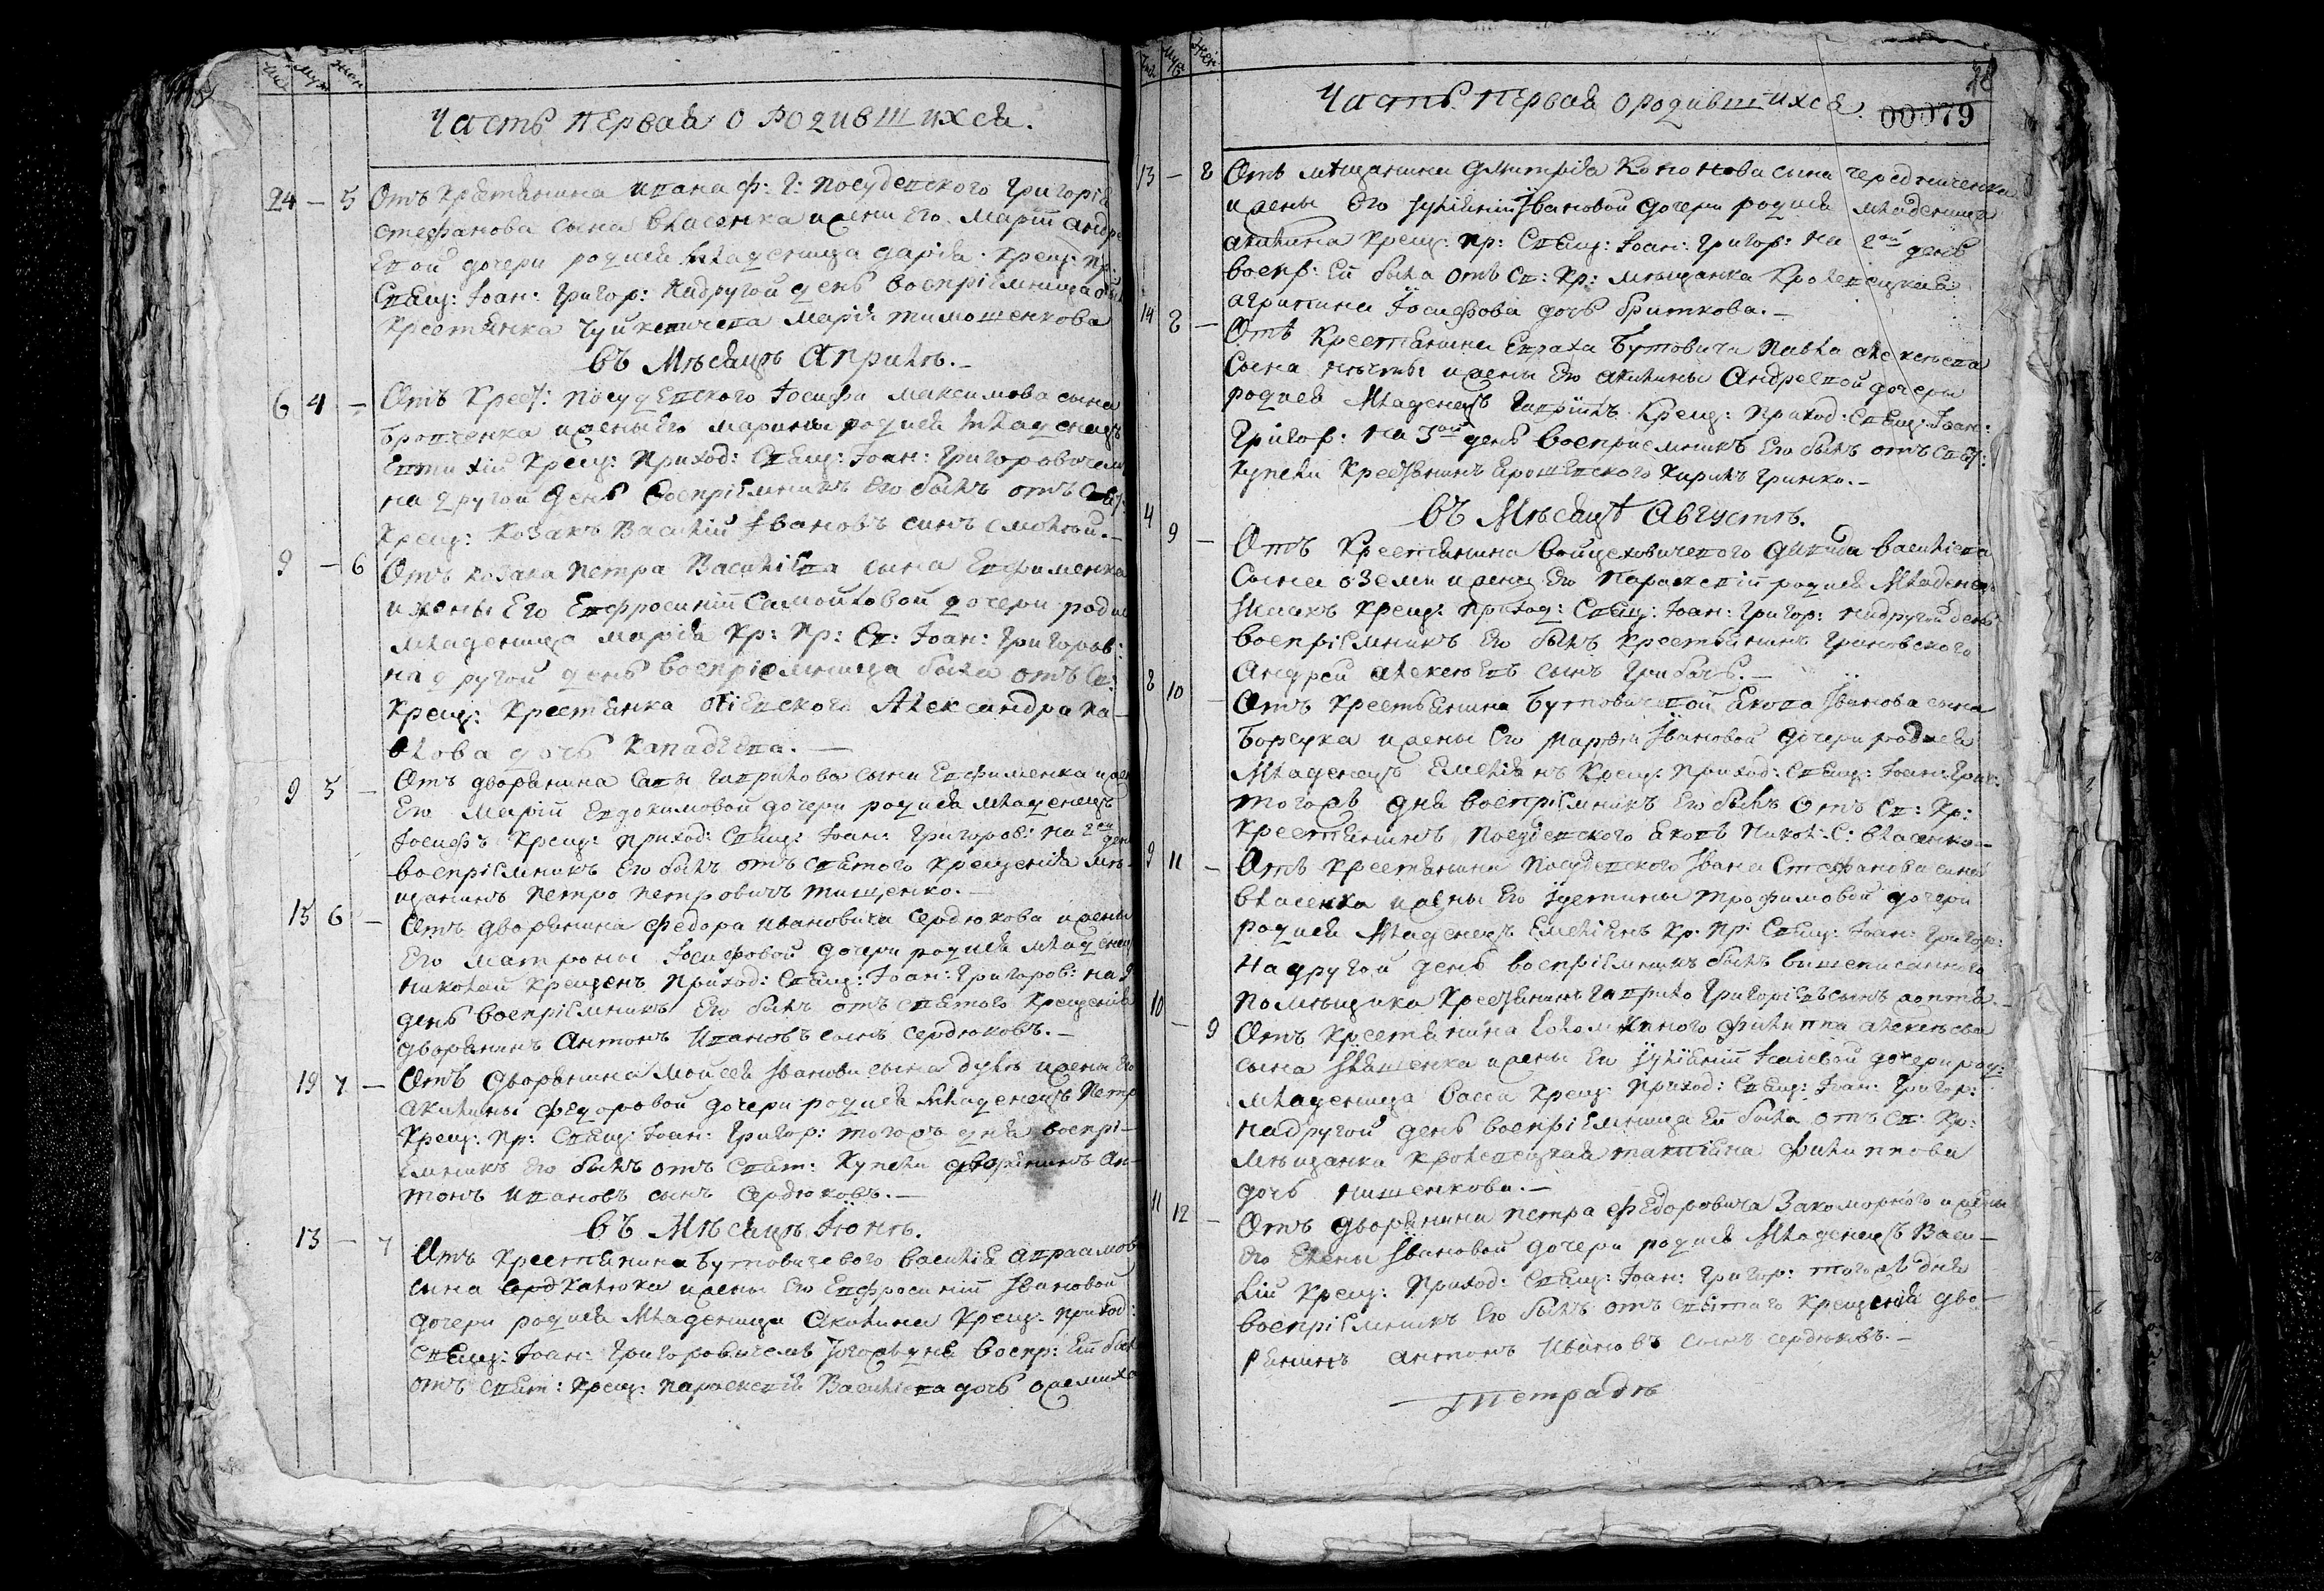 Чис муж жен
Часть первая о родившихся.
24 – 5 Отъ крестянина Ивана Ф: Г: Посудевского Григорія
Стефанова сына Власенка и жени его Маріи Андре
евой дочери родися младеница Дарія. Крещ: Пр:
Свящ: Іоан: Григор: На другой день воспріемница
крестянка Чуйкевичева Марія Тимошенкова
въ Мѣсяцѣ Априлѣ.
6 4 – Отъ крест: Посудевского Іосифа Максимова сына
и жены его Марины родися младенецъ
Евтихій Крещ: Приход: Свящ: Іоан: Григоровичем
на другой день воспріемникъ его былъ отъ Свят:
Крещ: козакъ Василій Івановъ синъ
9 – 6 Отъ козака Петра Василіева сына Евфименка
и жены его Евфросиніи Самойловой дочери роди
младеница Марія Кр: Пр: Св: Іоан: Григоров:
на другой день воспріемница была отъ Св:
Крещ: крестянка Александра
дочь
9 5 – Отъ дворянина Савы Гаврилова сына Евфименка и жен
его Маріи Евдокимовой дочери родися младенецъ
Іосифъ Крещ: Приход: Свящ: Іоан: Григоров: на 2ой ден
воспріемникъ его былъ отъ святого крещенія мѣ-
щанинъ Петро Петровичъ Тищенко. –
15 6 – Отъ дворянина Федора Ивановича Сердюкова и жены
его Матроны Іосифовой дочери родися младенец
Николай крещенъ Приход: Свящ: Іоан: Григоров: на
день воспріемникъ его былъ отъ святого крещенія
дворянинъ Антонъ Ивановъ сынъ Сердюковъ. –
19 7 – Отъ дворянина Мойсея Іванова сына и жены его
Акилины Федоровой дочери родися младенецъ Петр
Крещ: Пр: Свящ: Іоан: Григор: того жъ дня воспрі-
емникъ его былъ отъ Свят: купели дворянинъ Ан-
тонъ Ивановъ сынъ Сердюковъ. –
въ Мѣсяцѣ Іюнѣ.
13 – 7 Отъ крестянина Бутовичевого Василія Авраамов
сына и жены его Евфросиніи Івановой
дочери родися младеница Акилина Крещ: Приход:
Свящ: Іоан: Григоровичемъ того жъ дня воспр: ей была
отъ Свят: Крещ: Параскевія Василіева дочь
Чис муж жен
Часть первая о родившихся.
78
00079
13 – 8 Отъ мѣщанина Дмитрія Кононова сына Чередниченка
и жены его Іуліянии Івановой дочери родися младеница
Акилина Крещ: Пр: Свящ: Іоан: Григор: на 2ой день
воспр: ей была отъ Св: Кр: мѣщанка Кролевецкая
Агрипина Іосифова дочь Бриткова. –
14 8 – Отъ крестянина Евраха Бутовича Павла Алексѣева
сына и жены его Акилины Андреевой дочери
родися младенецъ Гавріилъ. Крещ: Приход: Свящ: Іоан:
Григор: на 3ой день воспріемникъ его былъ отъ Свят:
купели крестянинъ Кирилъ Гринко. –
въ Мѣсяцѣ Августѣ.
4 9 – Отъ крестянина Войцеховичевого Василіева
сына и жены его Параскевіи родися младенец
Ісаакъ Крещ: Приход: Свящ: Іоан: Григор: на другой день
воспріемникъ его былъ крестянинъ Грановского
Андрей Алексѣевъ сынъ Грибачъ. –
8 10 – Отъ крестьянина Бутовичевой Якова Іванова сына
и жены его Марфи Івановой дочери родися
младенецъ Емеліянъ Крещ: Приход: Свящ: Іоан: Григ:
того жъ дня воспріемникъ его былъ отъ Св: Кр:
крестянинъ Посудевского Яковъ Никол: С: Власенко –
9 11 – Отъ крестянина Посудевского Івана Стефанова сина
Власенка и жены его Іустины Трофимовой дочери
родися младенецъ Емеліянъ Кр: Пр: Свящ: Іоан: Григор:
на другой день воспріемникъ былъ вишеписанного
помѣщика крестянинъ Гаврило Григоріевъ сынъ
10 – 9 Отъ крестянина Филиппа Алексѣева
сына и жены его Іуліяніи Ісаіевой дочери род:
младеница Васса Крещ: Приход: Свящ: Іоан: Григор:
на другой день воспріемница ей была отъ Св: Кр:
мѣщанка Кролевецкая Татіяна Филиппова
дочь
11 12 – Отъ дворянина Петра Федоровича Закоморного и жены
его Елены Івановой дочери родися младенецъ Васи-
лій Крещ: Приход: Свящ: Іоан: Григор: того жъ дня
воспріемникъ его былъ отъ святаго крещенія дво-
рянинъ Антонъ Ивановъ сынъ Сердюковъ. –